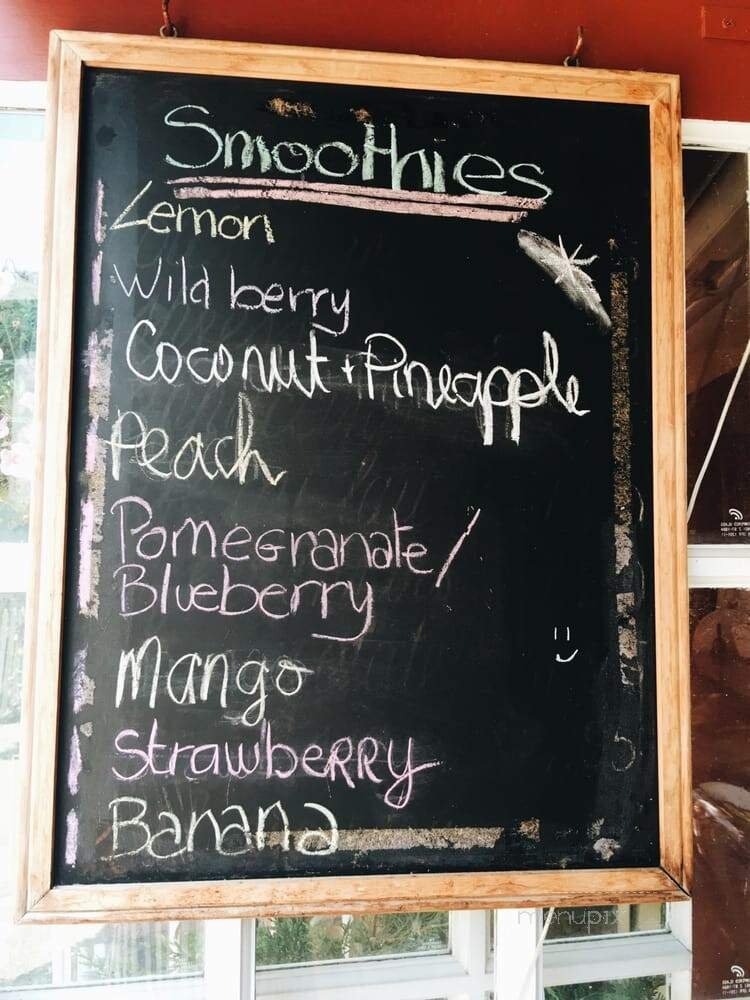 Smoothies
Lemon
Wild berry
Coconut + Pineapple
Peach
Pomegranate/
Blueberry
Mango
Strawberry
Banana
menupix